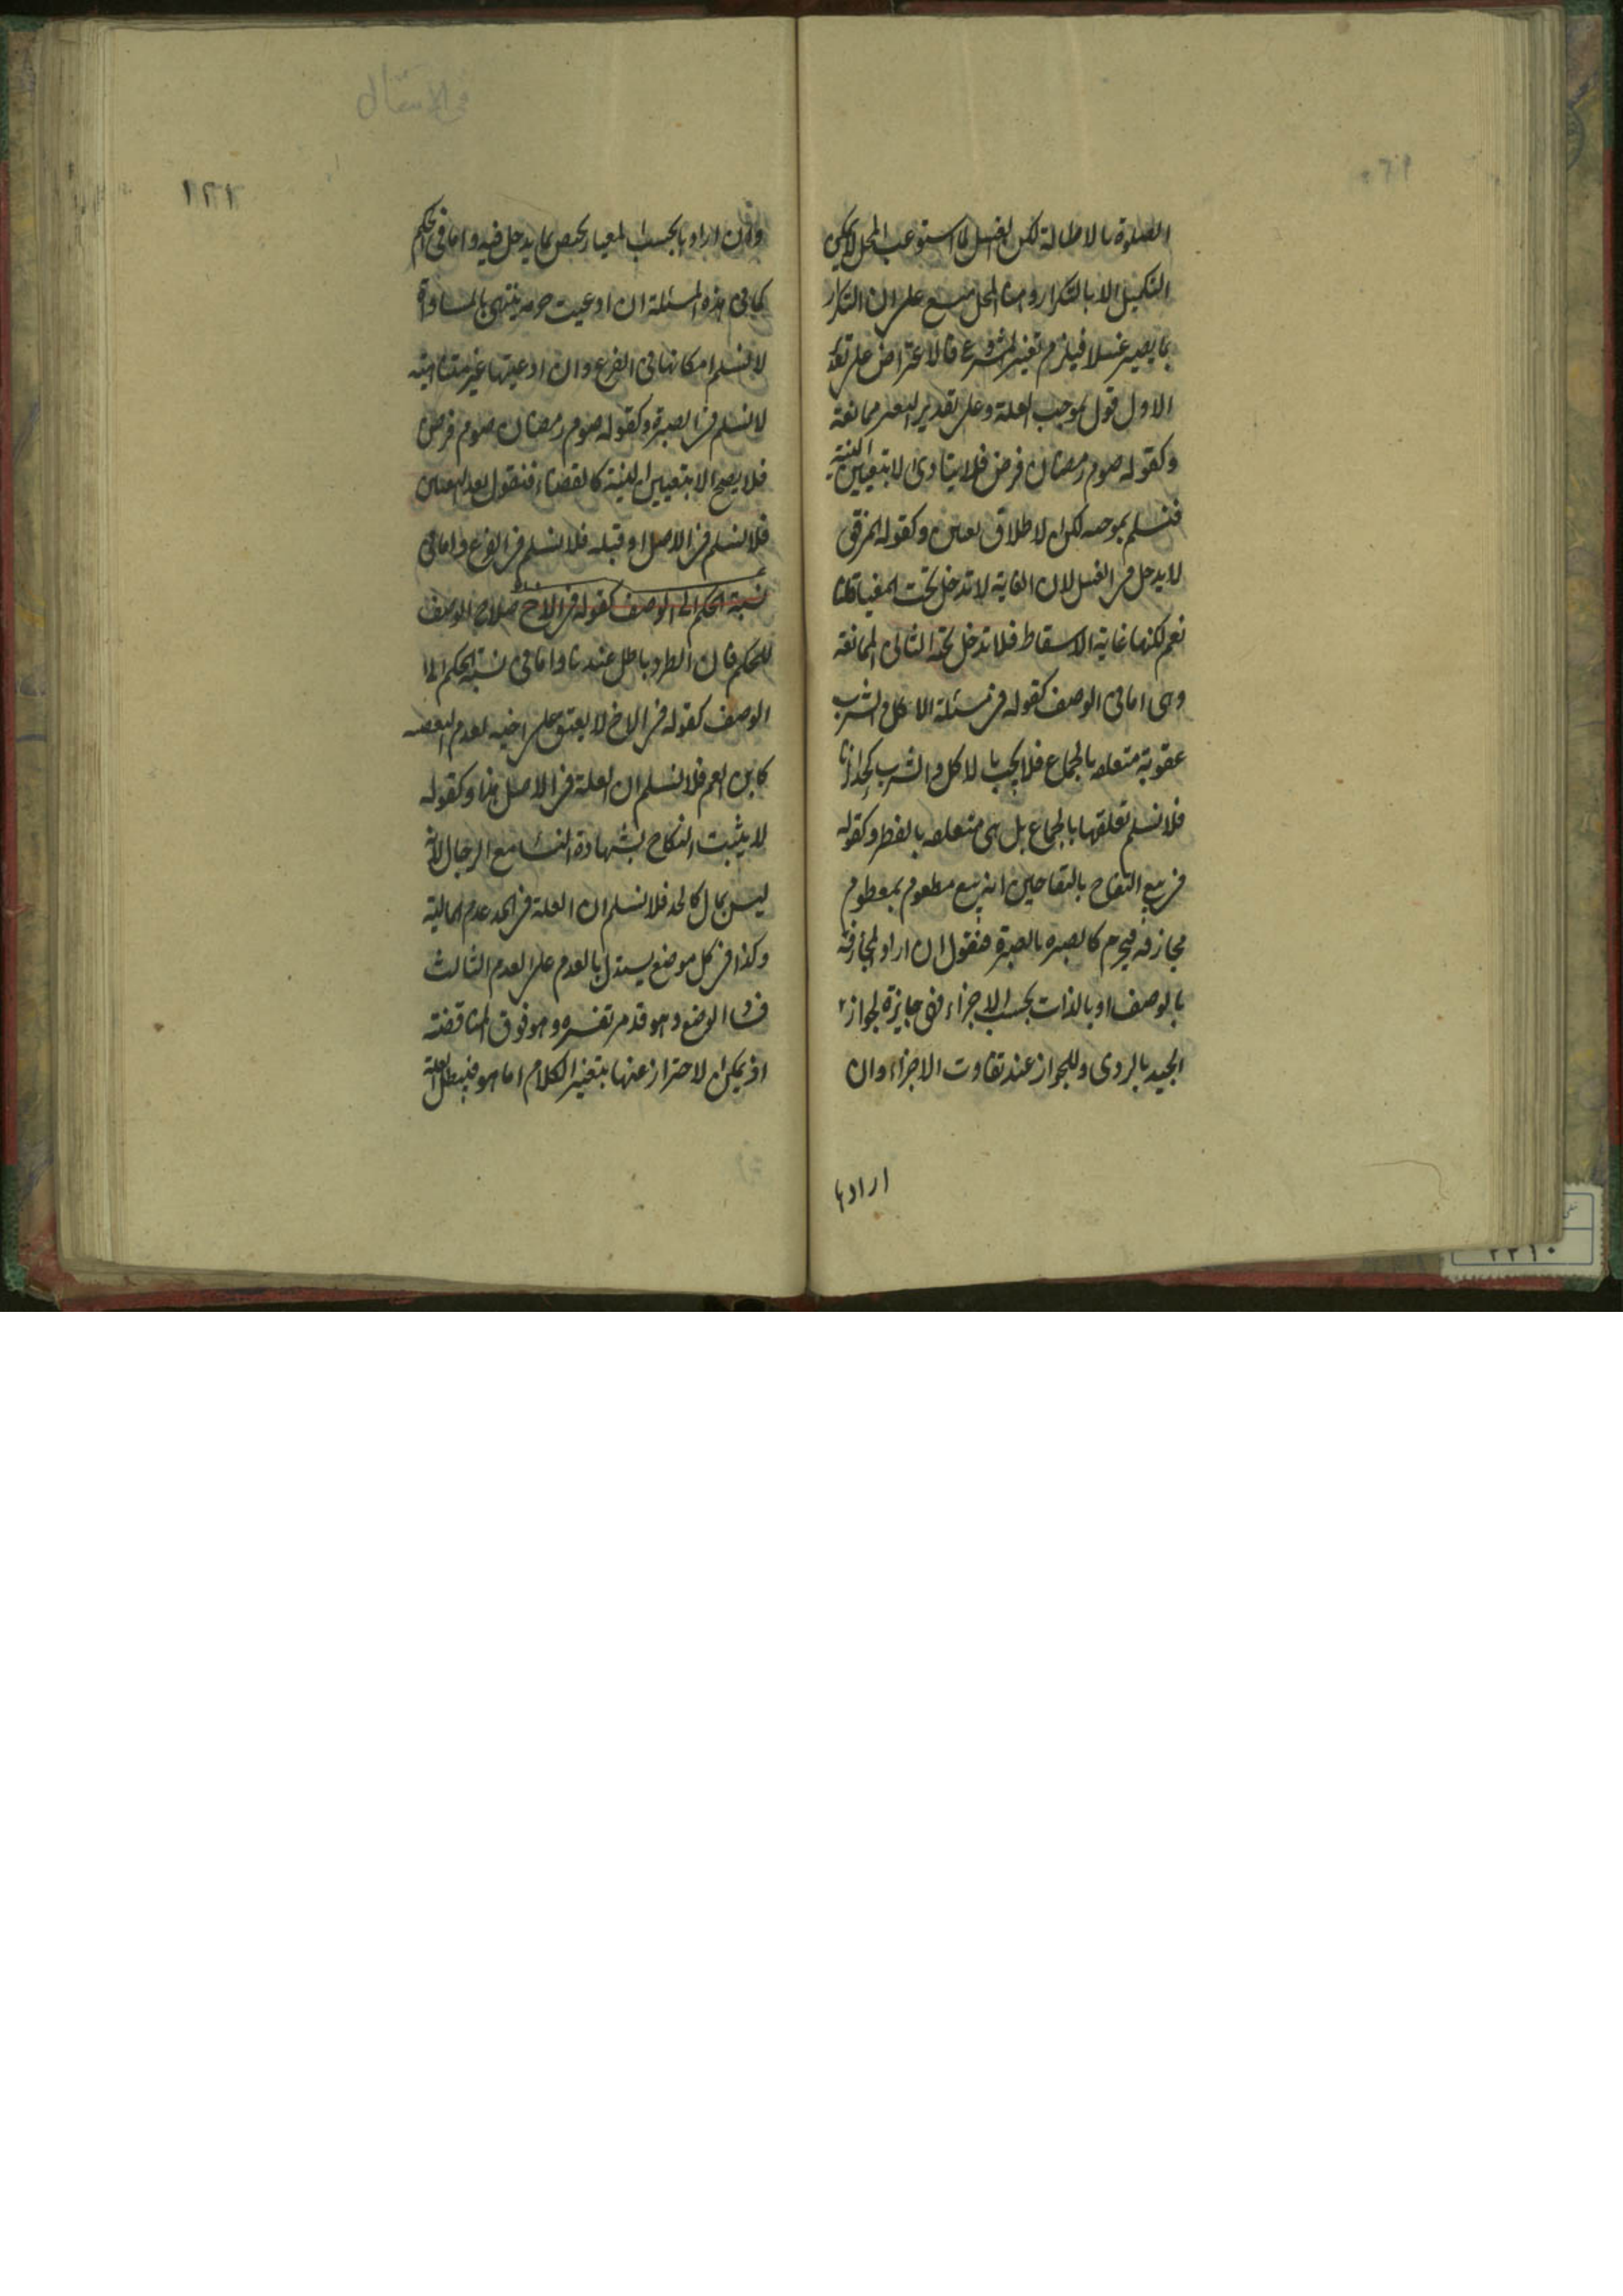 الصلوة بالاطالة لكن الغسل لما استوعب المحل لا يمكن
التكميل الا بالتكرار وهنا المحل متسع على ان التكرار
بما يصير غسلا فيلزم تغيير المشروع فالاعتراض على تقدير
الاول قول بموجب العلة وعلى تقدير التغير ممانعة
وكقوله صوم رمضان فرض فلا يتادى الا بتعيين النية
فنسلم بموجبه لكن الاطلاق تعيين وكقوله المرفق
لا يدخل فى الغسل لان الغاية لا تدخل تحت المغيا قلنا
نعم لكنها غاية الاسقاط فلا تدخل تحته الثانى الممانعة
وهى اما فى الوصف كقوله فى مسئلة الاكل والشرب
عقوبة متعلقة بالجماع فلا يجب بالاكل والشرب كحد الزنا
فلا نسلم تعلقها بالجماع بل هى متعلقة بالفطر وكقوله
فى بيع التفاح بالتفاحين انه بيع مطعوم بمطعوم
مجازفة فيحرم كالصبرة بالصبرة فنقول ان اراد المجازفة
بالوصف او بالذات بحسب الاجزاء فهى جايزة لجواز
الجيد بالردى وللجواز عند تفاوت الاجزاء وان
ارادها
١٢٢
وان اراد بالحسب المعيار يختص بما يدخل فيه واما فى الحكم
كما فى هذه المسئلة ان ادعيت حرمة تنتهى بالمساواة
لا نسلم امكانها فى الفرع وان ادعيتها غير متناهية
لا نسلم فى الصبرة وكقوله صوم رمضان صوم فرض
فلا يصح الا بتعيين النية كالقضاء فنقول بعد التعين
فلا نسلم فى الاصل او قبله فلا نسلم فى الفرع واما فى
نسبة الحكم الى الوصف كقوله فى الاخ صلاح الوصف
للحكم فان الطرد باطل عندنا واما فى نسبة الحكم الى
الوصف كقوله فى الاخ لا يعتق على اخيه لعدم البعضية
كابن العم فلا نسلم ان العلة فى الاصل هذا وكقوله
لا يثبت النكاح بشهادة النساء مع الرجال لانه
ليس بمال كالحد فلا نسلم ان العلة فى الحد عدم المالية
وكذا فى كل موضع يستدل بالعدم على العدم الثالث
فساد الوضع وهو قد مر تفسيره وهو فوق المناقضة
اذ يمكن الاحتراز عنها بتغيير الكلام اما هو فيبطل العلة